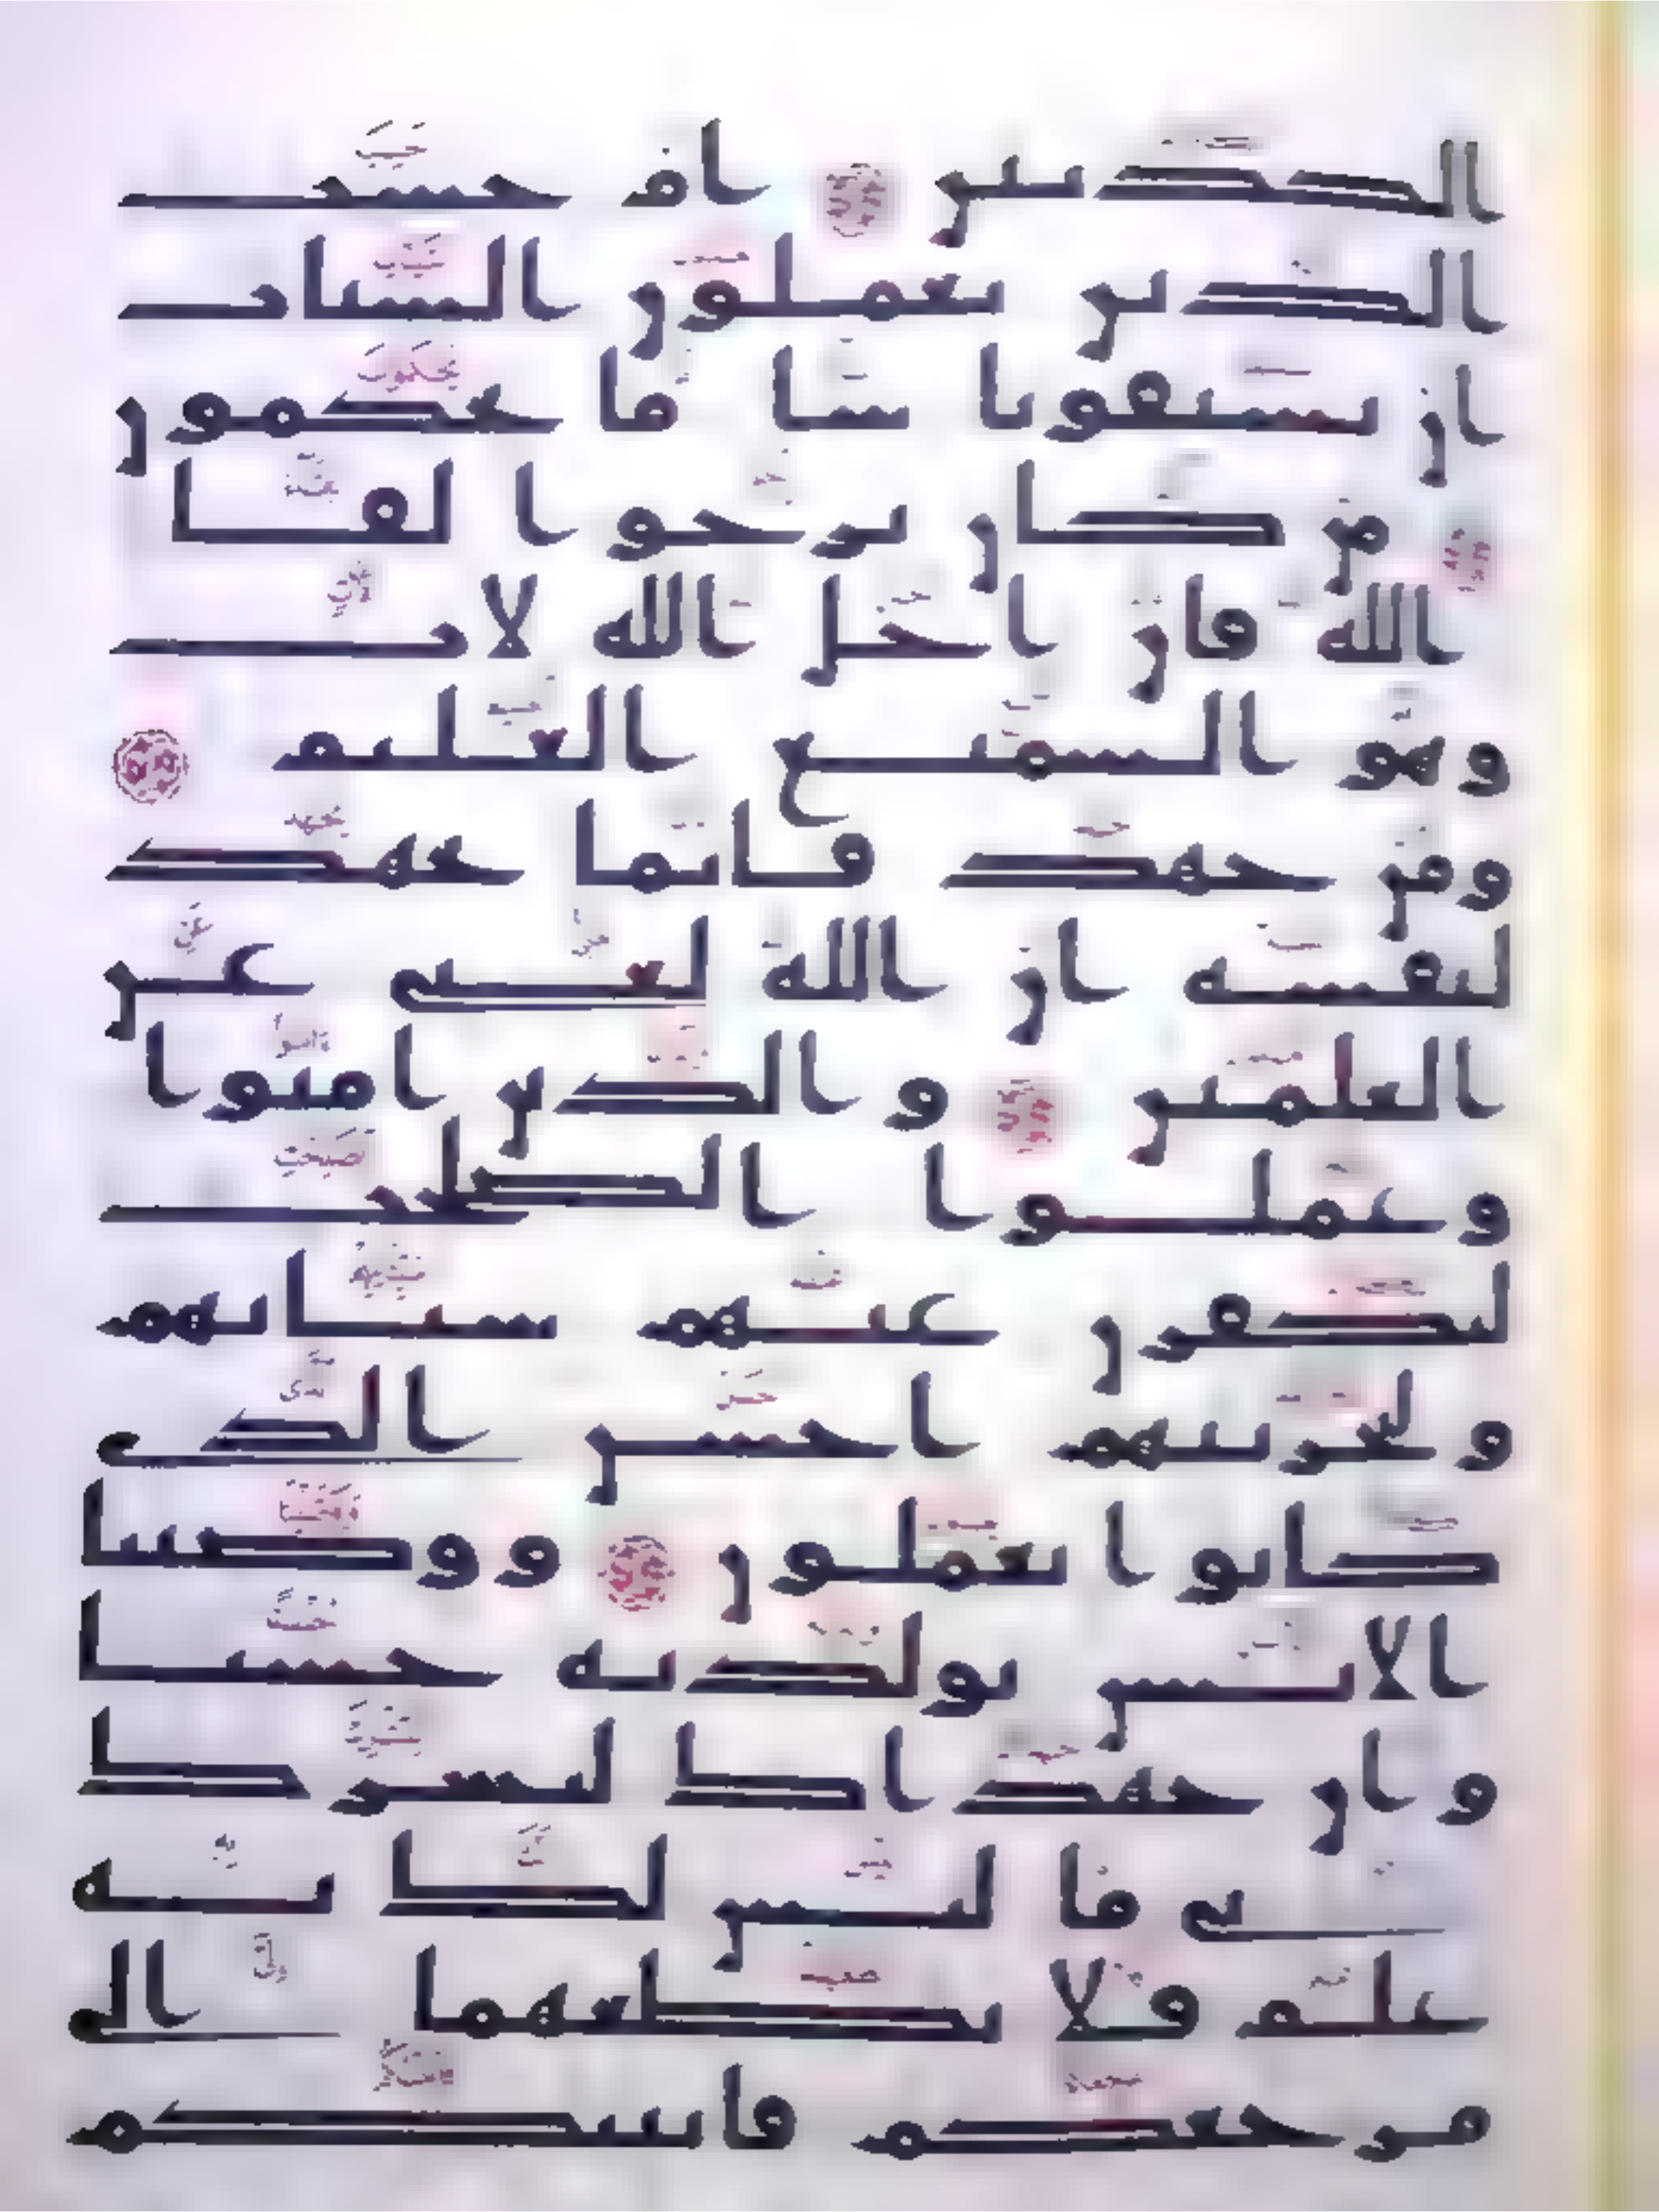 الكذبين ام حسب
الذين يعملون السيات
ان يسبقونا سا ما يحكمون
من كان يرجوا لقا
الله فان اجل الله لات
وهو السميع العليم
ومن جهد فانما يجهد
لنفسه ان الله لغنى عن
العلمين والذين امنوا
وعملوا الصلحت
لنكفرن عنهم سياتهم
ولنجزينهم احسن الذى
كانوا يعملون ووصينا
الانسن بولديه حسنا
وان جهداك لتشرك
بى ما ليس لك به
علم فلا تطعهما الى
مرجعكم فانبيكم